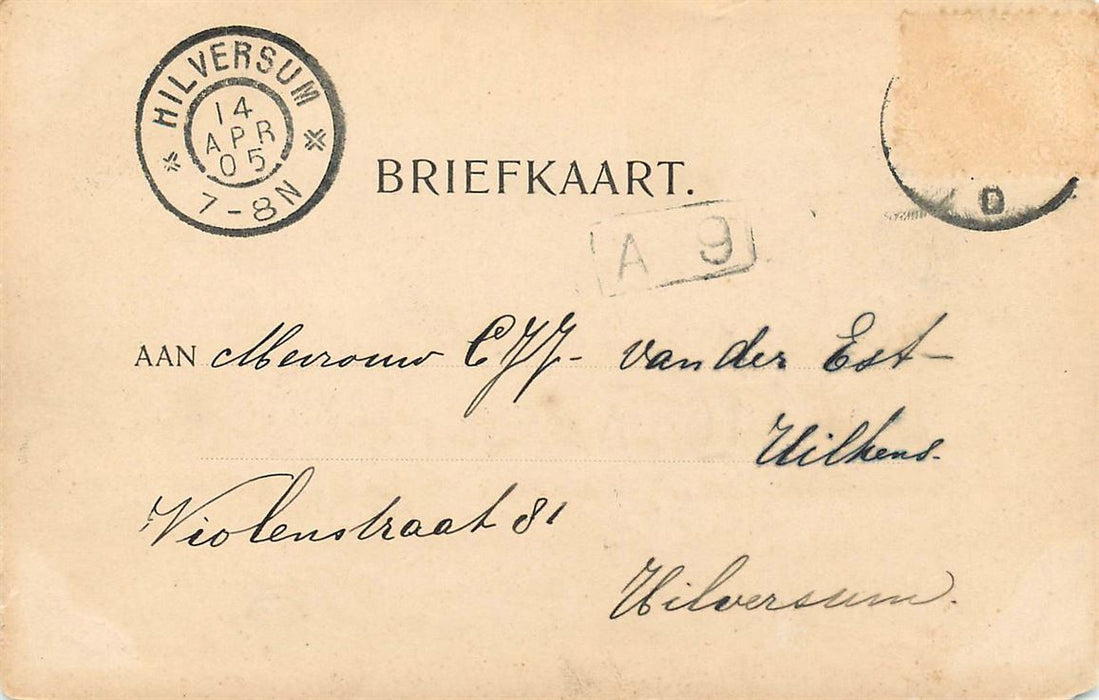 HILVERSUM
14
APR
05
7-8N
BRIEFKAART.
A 9
AAN Mevrouw C J J - van der Est-
Wilkens.
Violenstraat 81
Hilversum.